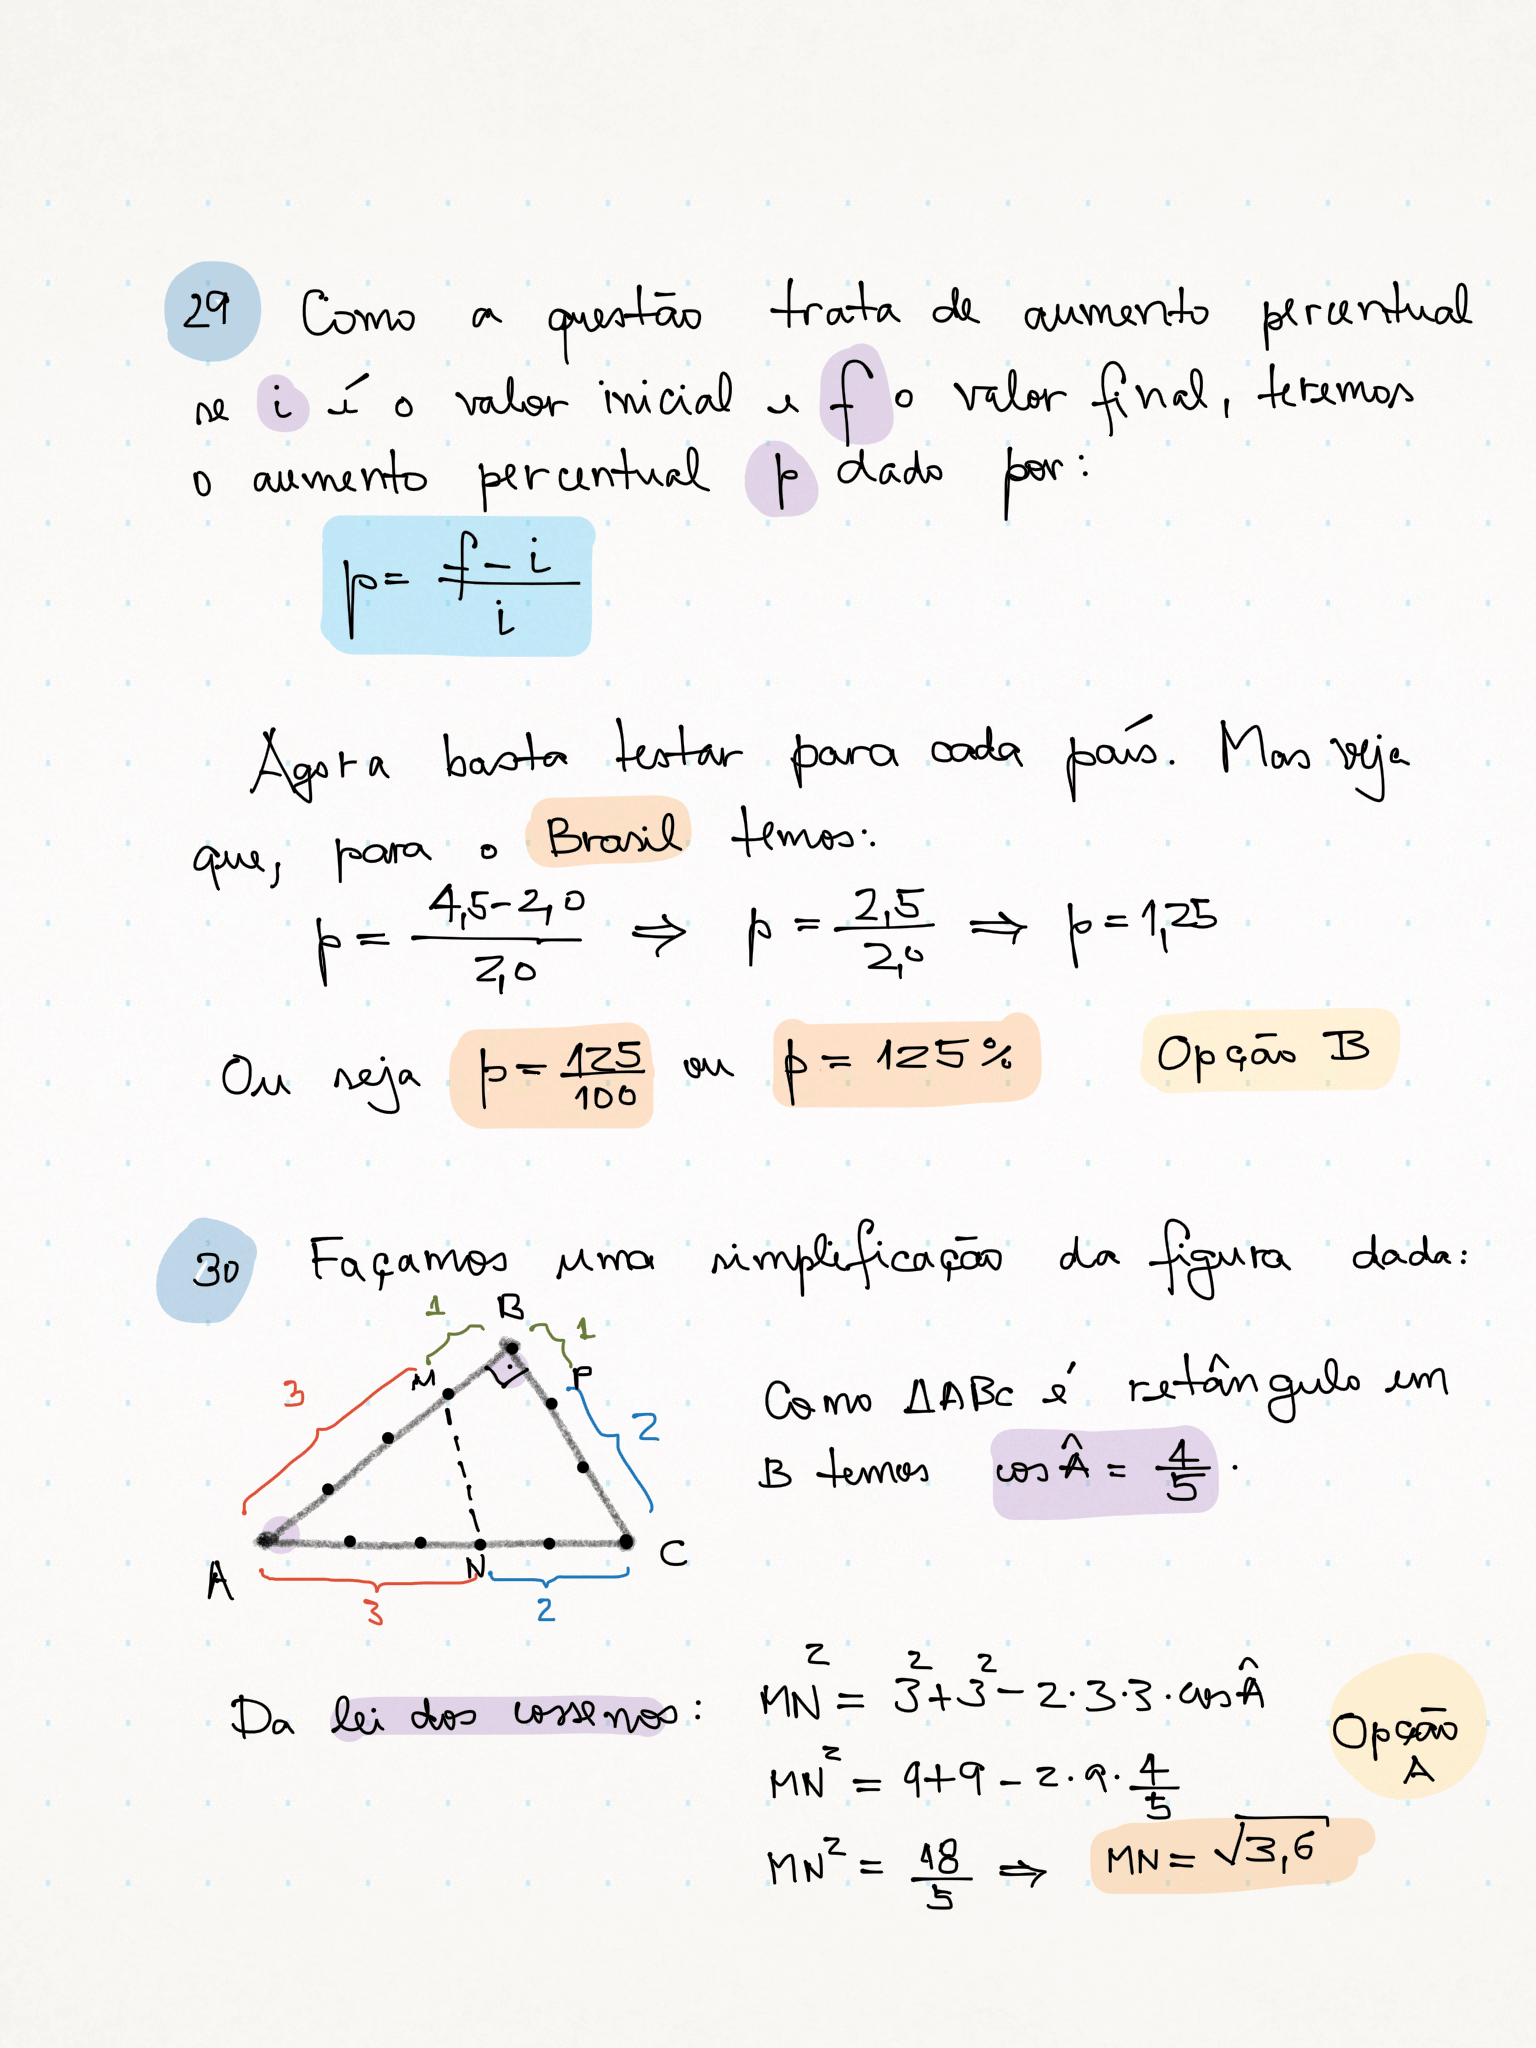 29 Como a questão trata de aumento percentual
se i é o valor inicial e f o valor final, teremos
o aumento percentual p dado por:
p = (f - i) / i
Agora basta testar para cada país. Mas veja
que, para o Brasil temos:
p = (4,5 - 2,0) / 2,0 ⇒ p = 2,5 / 2,0 ⇒ p = 1,25
Ou seja p = 125/100 ou p = 125% Opção B
30 Façamos uma simplificação da figura dada:
1 B 1
3 M P 2
Como ΔABC é retângulo em
B temos cos Â = 4/5.
A N C
3 2
Da lei dos cossenos: MN² = 3² + 3² - 2·3·3·cos Â
Opção
A
MN² = 9 + 9 - 2·9·4/5
MN² = 18/5 ⇒ MN = √3,6